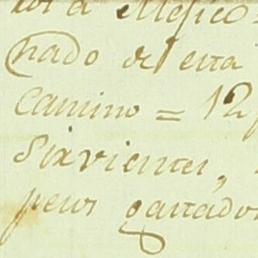 a Mexico
nado de esta
camino = 12
Sirvientes,
pesos gastados